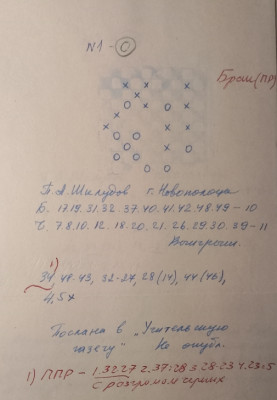 N1 - O
Брак (ПР)
П. А. Шклудов г. Новополоцк
Б. 17.19.31.32.37.40.41.42.48.49 - 10
Ч. 7.8.10.12.18.20.21.26.29.30.39 - 11
Выигрыш.
1)
34, 48-43, 32-27, 28 (14), 44 (46),
4, 5х
Послана в „Учительскую
газету" Не опубл.
1) ППР - 1.32-27 2.37:28 3.28-23 4.23:5
с разгромом черных